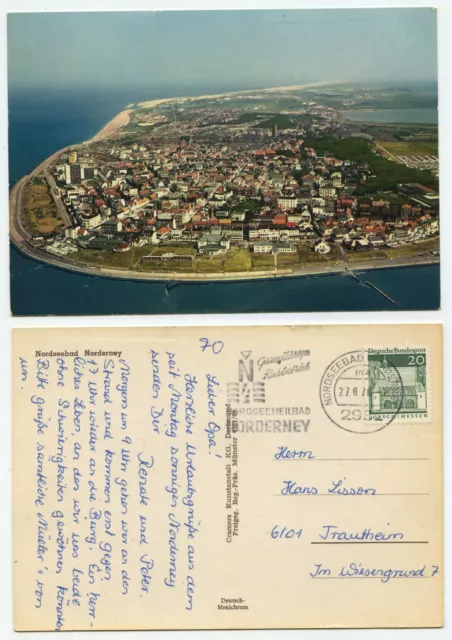 Nordseebad Norderney
70
Lieber Opa!
Herzliche Urlaubsgrüße aus dem
seit Montag sonnigen Norderney
senden Dir
Renate und Peter.
Morgens um 9 Uhr gehen wir an den
Strand und kommen erst gegen
17 Uhr wieder an die Burg. Ein herr-
liches Leben, an das wir uns beide
ohne Schwierigkeiten gewöhnen könnten
Bitte grüße sämtliche Müller's von
uns.
Cramers Kunstanstalt KG, Dortmund
Freigeg. Reg.-Präs. Münster
Deutsch-
Mexichrom
Ganzjähriger
Kurbetrieb
N
NORDSEEHEILBAD
NORDERNEY
NORDSEEBAD
27.8.70
298
Deutsche Bundespost
20
LORSCH · HESSEN
Herrn
Hans Lisson
6101 Trautheim
Im Wiesengrund 7